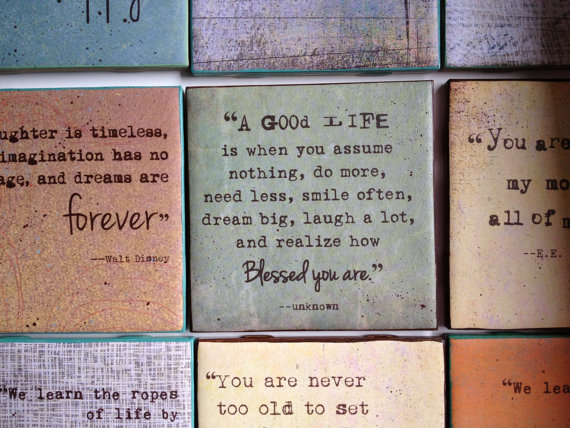 ughter is timeless,
imagination has no
age, and dreams are
forever”
--Walt Disney
“A GOOd LIFE
is when you assume
nothing, do more,
need less, smile often,
dream big, laugh a lot,
and realize how
Blessed you are.”
--unknown
“You are
my mo
all of m
--E.E.
“We learn the ropes
of life by
“You are never
too old to set
“We lea